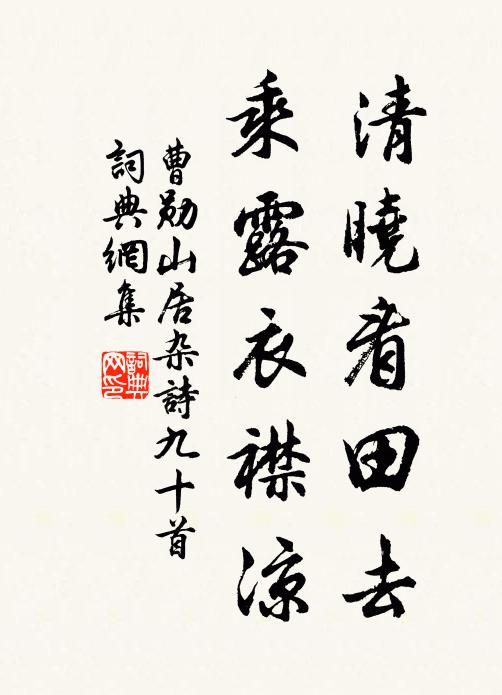 清曉看田去
乘露衣襟涼
曹勛山居杂詩九十首
詞典網集
詞典网印